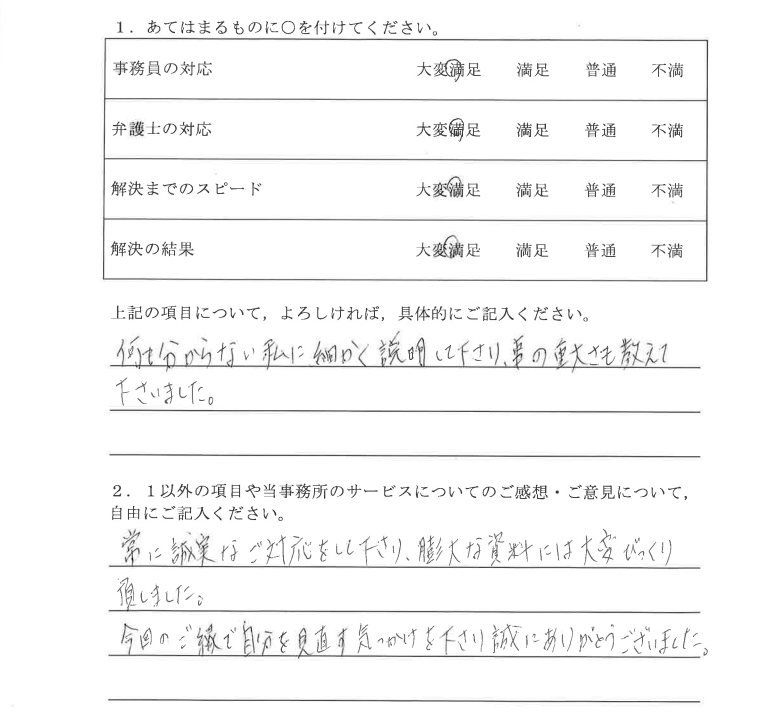 １．あてはまるものに○を付けてください。
事務員の対応 大変満足 満足 普通 不満
弁護士の対応 大変満足 満足 普通 不満
解決までのスピード 大変満足 満足 普通 不満
解決の結果 大変満足 満足 普通 不満
上記の項目について，よろしければ，具体的にご記入ください。
何も分からない私に細かく説明して下さり、事の重大さも教えて
下さいました。
２．１以外の項目や当事務所のサービスについてのご感想・ご意見について，
自由にご記入ください。
常に誠実なご対応をして下さり、膨大な資料には大変びっくり
致しました。
今回のご縁で自分を見直す気っかけを下さり誠にありがとうございました。